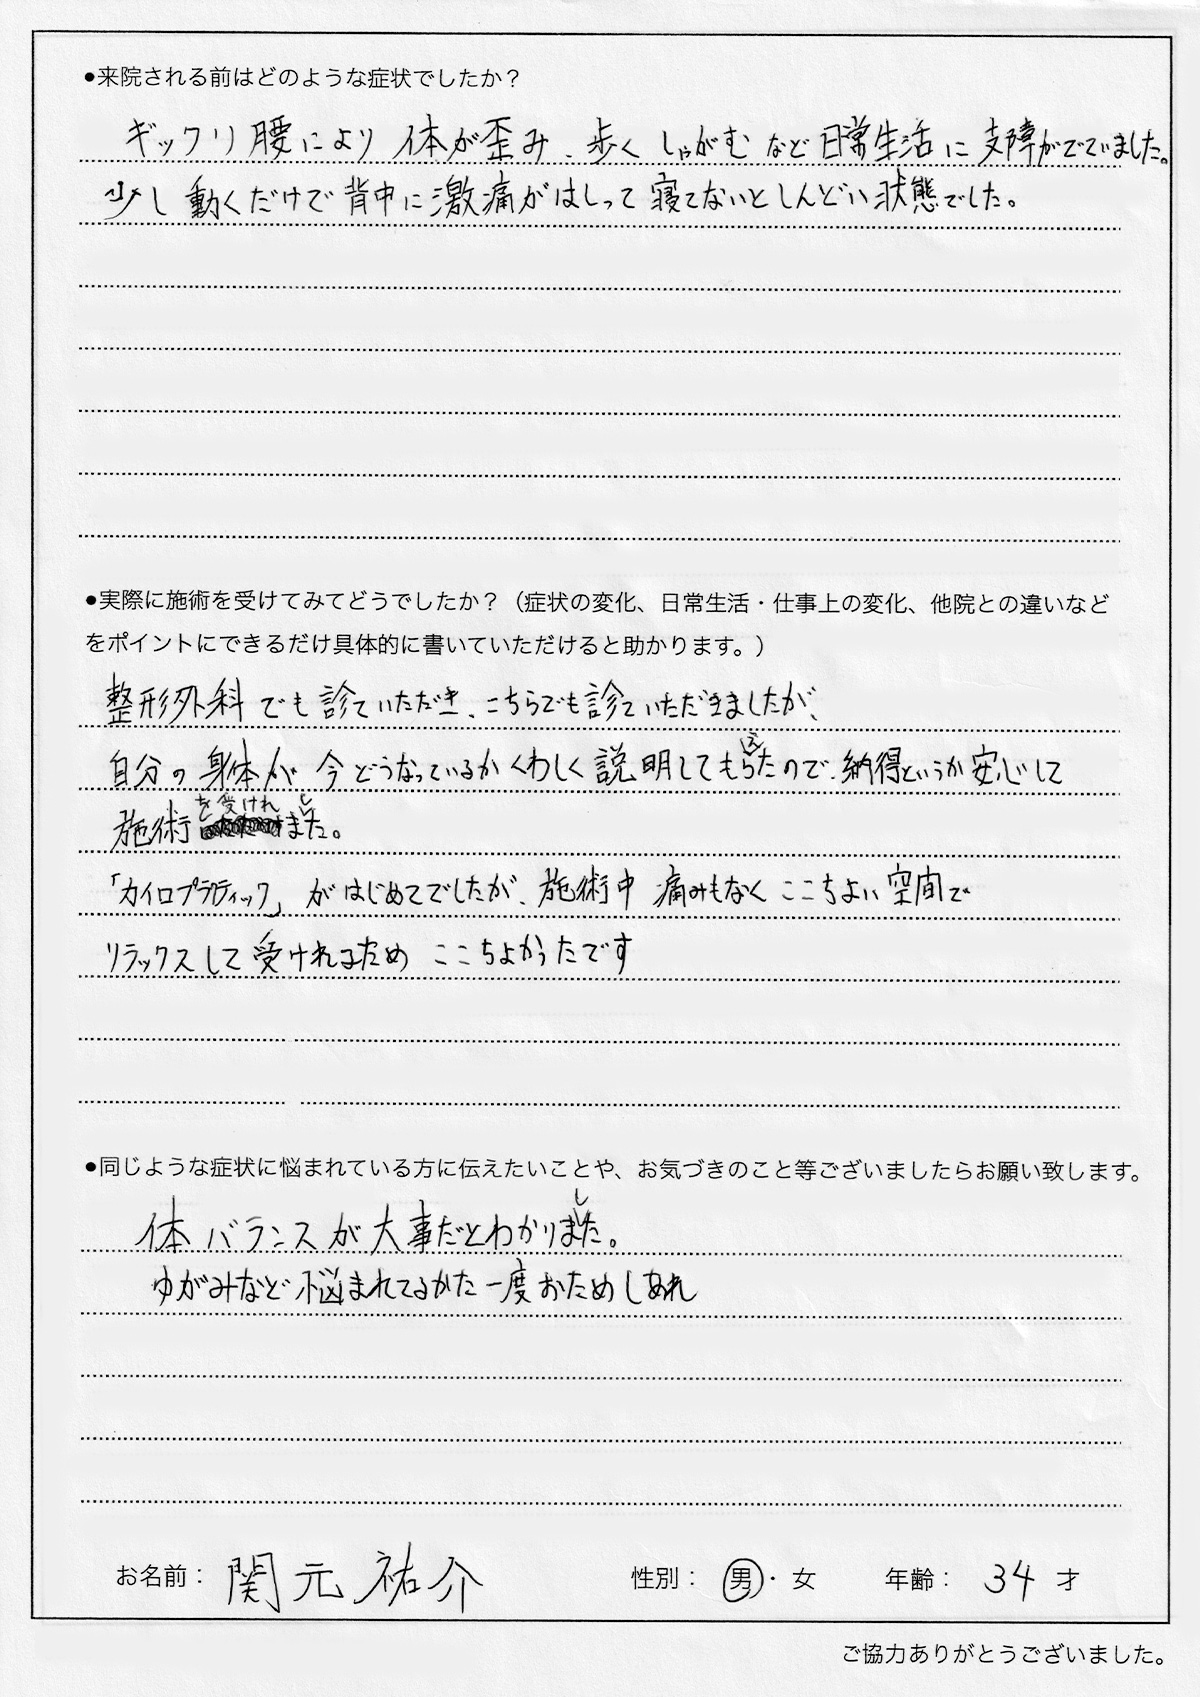 ●来院される前はどのような症状でしたか？
ギックリ腰により体が歪み、歩くしゃがむなど日常生活に支障がでていました。
少し動くだけで背中に激痛がはしって寝てないとしんどい状態でした。
●実際に施術を受けてみてどうでしたか？（症状の変化、日常生活・仕事上の変化、他院との違いなど
をポイントにできるだけ具体的に書いていただけると助かります。）
整形外科でも診ていただき、こちらでも診ていただきましたが、
自分の身体が今どうなっているかくわしく説明してもらえたので、納得というか安心して
施術を受けれました。
「カイロプラティック」がはじめてでしたが、施術中痛みもなくここちよい空間で
リラックスして受けれるためここちよかったです
●同じような症状に悩まれている方に伝えたいことや、お気づきのこと等ございましたらお願い致します。
体バランスが大事だとわかりました。
ゆがみなど悩まれてるかた一度おためしあれ
お名前： 関元祐介 性別： 男・女 年齢： 34 才
ご協力ありがとうございました。